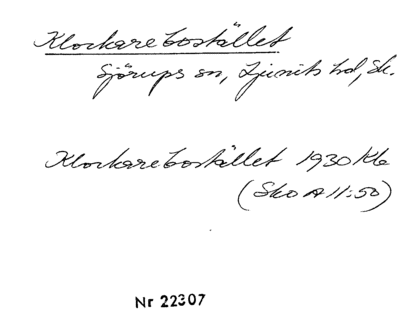 Klockarebostället
Sjörups sn, Ljunits hd, Sk.
Klockarebostället 1930 Kb
(Sko A 11:50)
Nr 22307